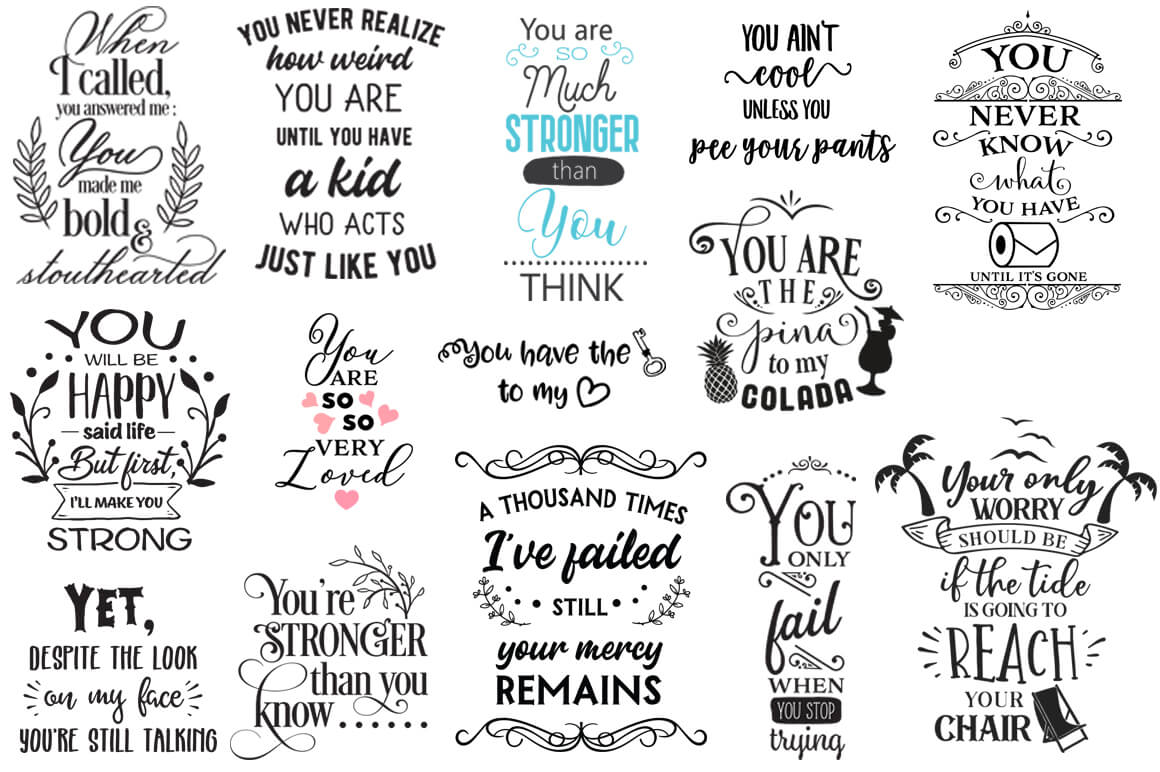 When
I called,
you answered me :
You
made me
bold &
stouthearted
YOU NEVER REALIZE
how weird
YOU ARE
UNTIL YOU HAVE
a kid
WHO ACTS
JUST LIKE YOU
You are
SO
Much
STRONGER
than
You
THINK
YOU AIN'T
cool
UNLESS YOU
pee your pants
YOU
NEVER
KNOW
what
YOU HAVE
UNTIL IT'S GONE
YOU ARE
THE
pina
to my
COLADA
YOU
WILL BE
HAPPY
said life
But first,
I'LL MAKE YOU
STRONG
You
ARE
SO
SO
VERY
Loved
You have the
to my
A THOUSAND TIMES
I've failed
STILL
your mercy
REMAINS
YOU
ONLY
fail
WHEN
YOU STOP
trying
Your only
WORRY
SHOULD BE
if the tide
IS GOING TO
REACH
YOUR
CHAIR
YET,
DESPITE THE LOOK
on my face
YOU'RE STILL TALKING
You're
STRONGER
than you
know......